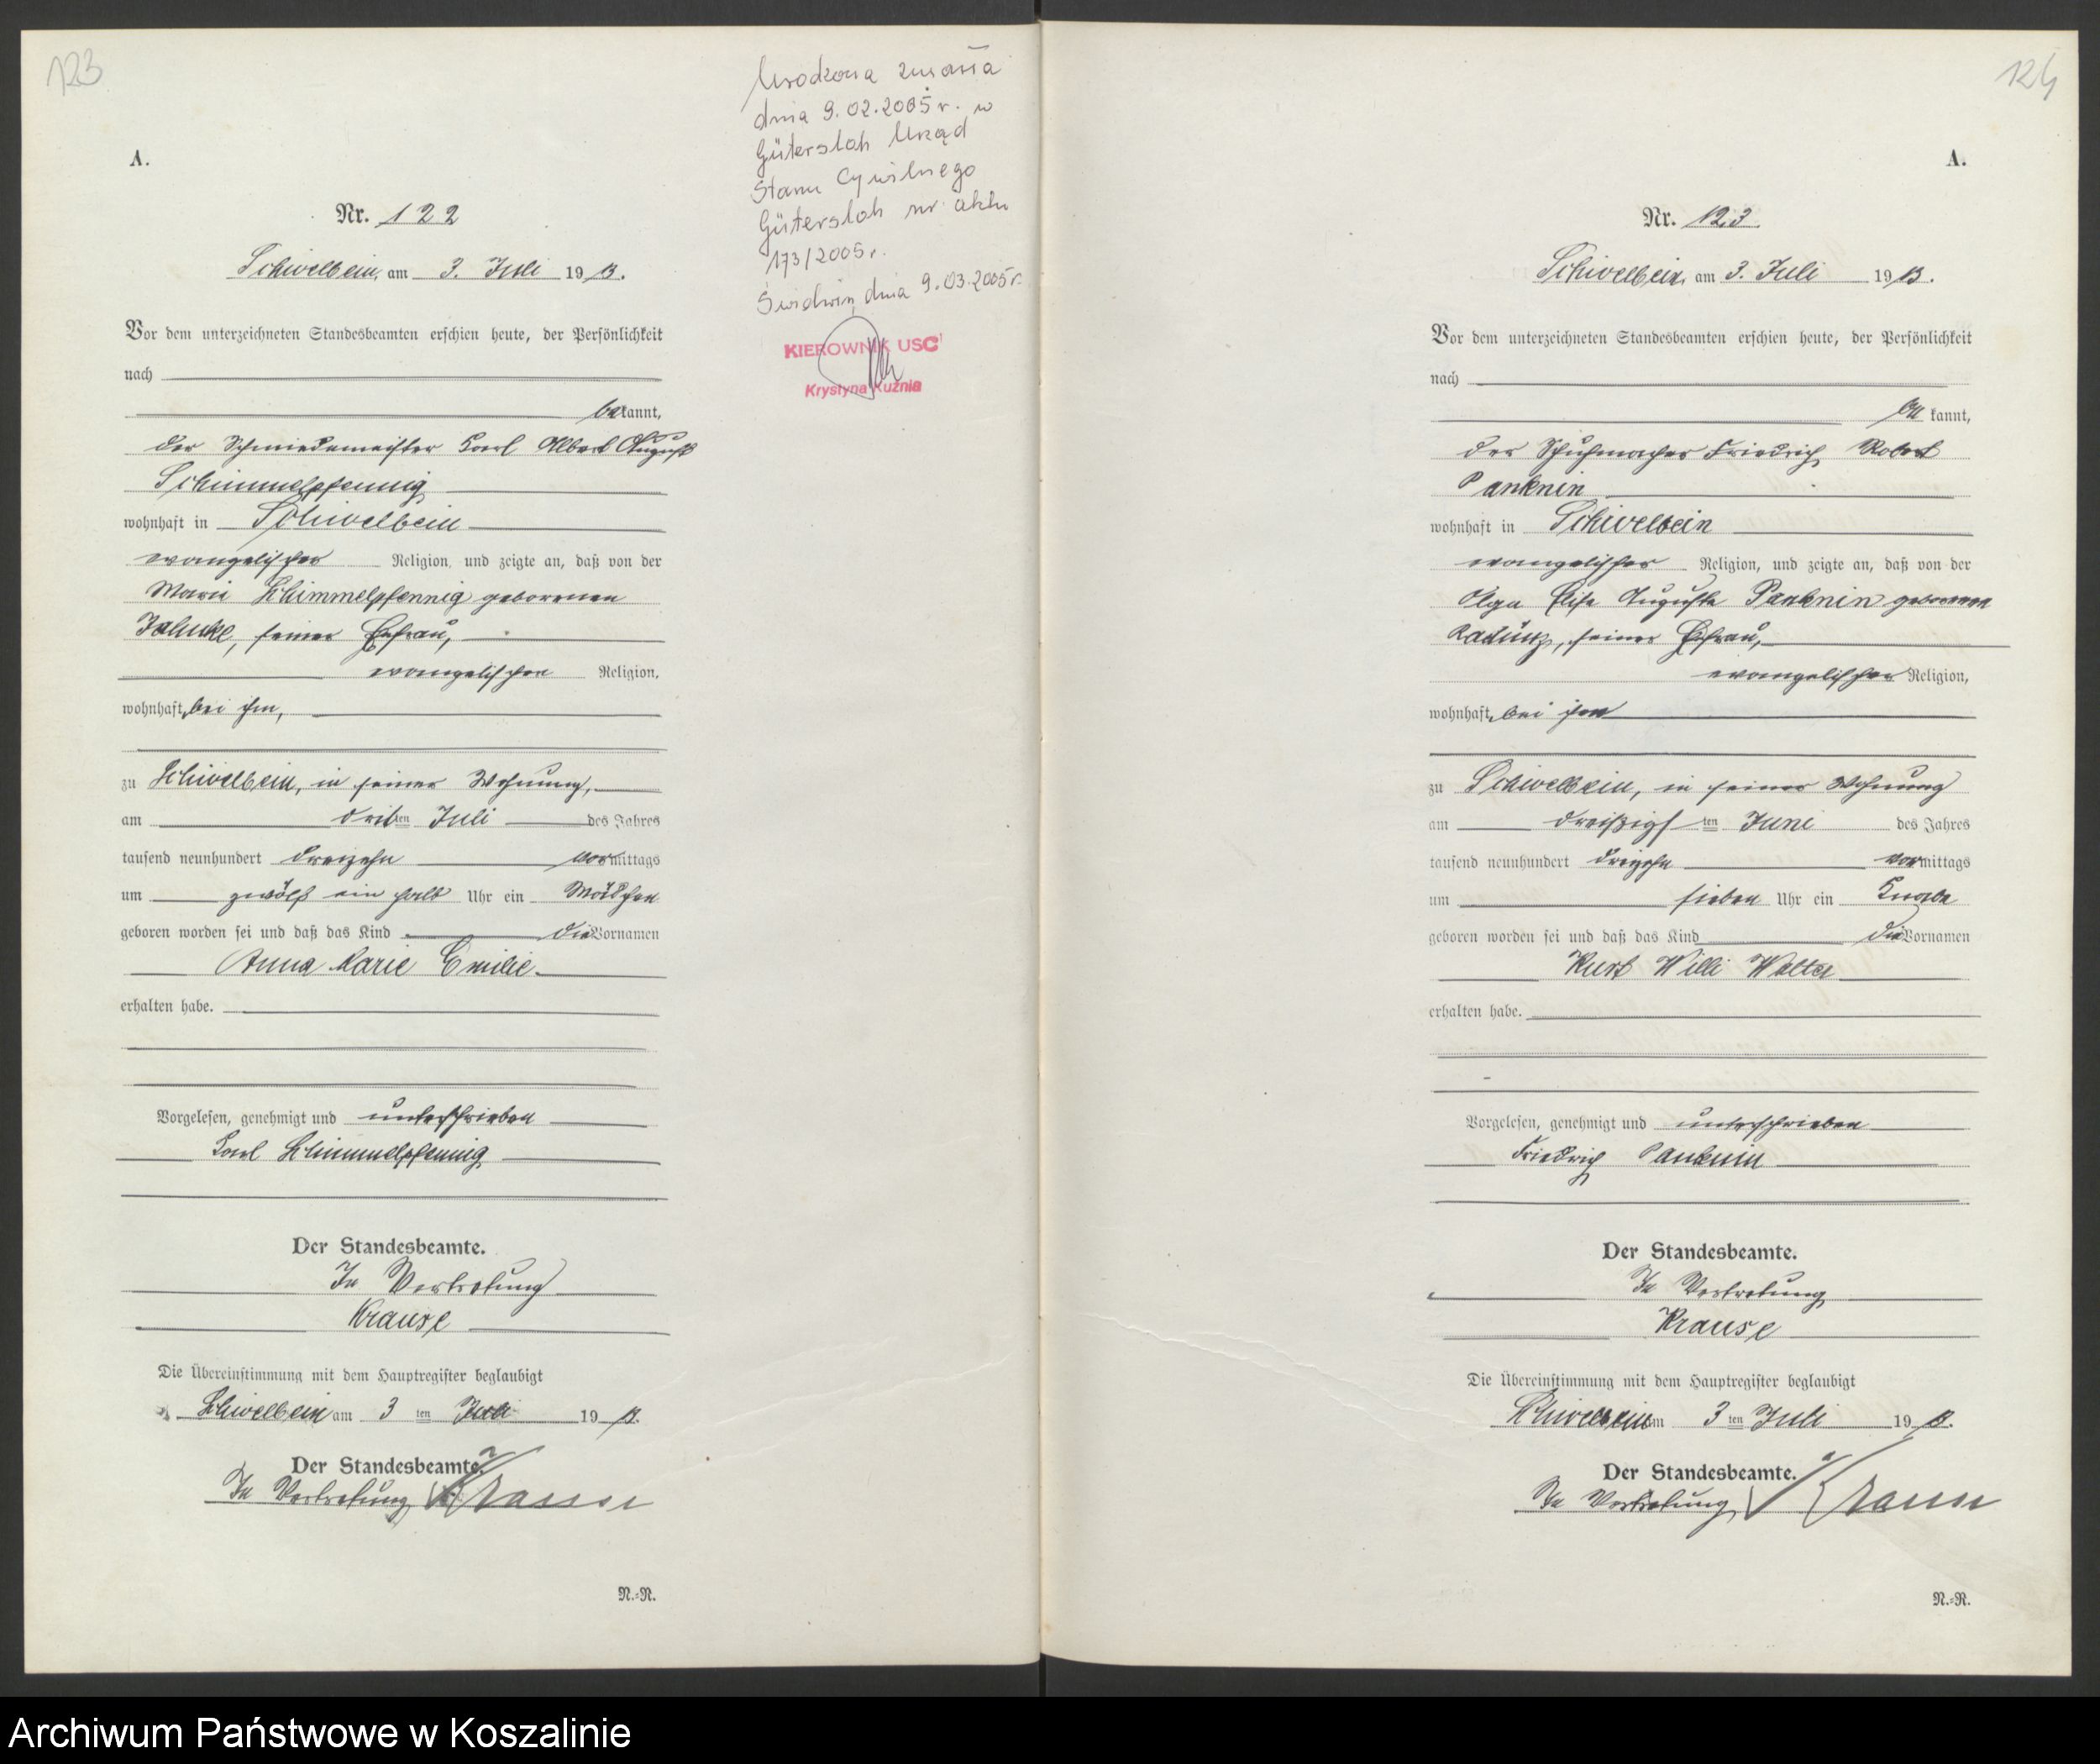 123
A.
Nr. 122
Schivelbein, am 3. Juli 1913.
Vor dem unterzeichneten Standesbeamten erschien heute, der Persönlichkeit
nach
bekannt,
der Schmiedemeister Karl Albert August
Schimmelpfennig
wohnhaft in Schivelbein
evangelischer Religion, und zeigte an, daß von der
Marie Schimmelpfennig geborenen
Jahnke, seiner Ehefrau,
evangelischen Religion,
wohnhaft bei ihm,
zu Schivelbein, in seiner Wohnung,
am dritten Juli des Jahres
tausend neunhundert dreizehn vormittags
um zwölf ein halb Uhr ein Mädchen
geboren worden sei und daß das Kind die Vornamen
Anna Marie Emilie
erhalten habe.
Vorgelesen, genehmigt und unterschrieben
Karl Schimmelpfennig
Der Standesbeamte.
In Vertretung
Krause
Die Übereinstimmung mit dem Hauptregister beglaubigt
Schivelbein am 3ten Juli 1913.
Der Standesbeamte.
In Vertretung Krause
N.=R.
dnia 9.02.2005 r. w
Gütersloh Urząd
Stanu Cywilnego
Gütersloh nr aktu
173/2005 r.
Świdwin, dnia 9.03.2005 r.
KIEROWNIK USC
Krystyna Kuźnia
124
A.
Nr. 123.
Schivelbein, am 3. Juli 1913.
Vor dem unterzeichneten Standesbeamten erschien heute, der Persönlichkeit
nach
bekannt,
der Schuhmacher Friedrich Robert
Panknin
wohnhaft in Schivelbein
evangelischer Religion, und zeigte an, daß von der
Olga Elise Auguste Panknin geborenen
Radünz, seiner Ehefrau,
evangelischer Religion,
wohnhaft bei ihm
zu Schivelbein, in seiner Wohnung
am dreißigsten Juni des Jahres
tausend neunhundert dreizehn vormittags
um sieben Uhr ein Knabe
geboren worden sei und daß das Kind die Vornamen
Kurt Willi Walter
erhalten habe.
Vorgelesen, genehmigt und unterschrieben
Friedrich Panknin
Der Standesbeamte.
In Vertretung
Krause
Die Übereinstimmung mit dem Hauptregister beglaubigt
Schivelbein am 3ten Juli 1913.
Der Standesbeamte.
In Vertretung Krause
N.=R.
Archiwum Państwowe w Koszalinie